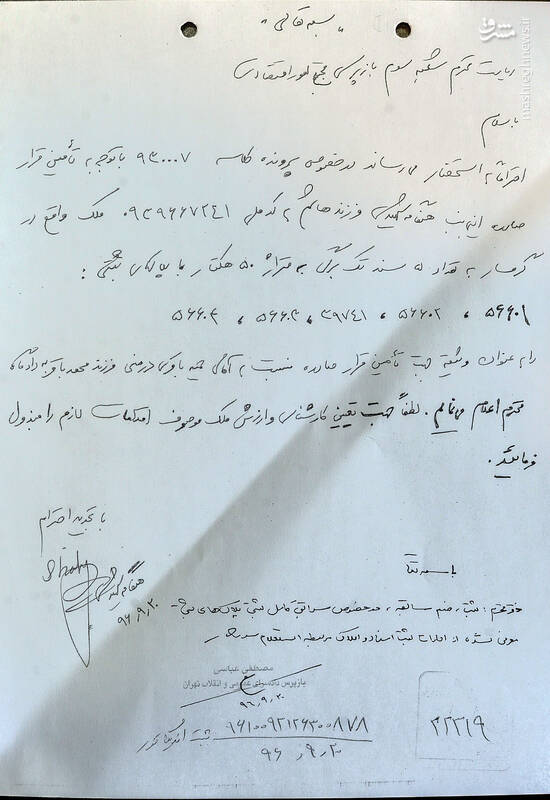 بسمه تعالی
ریاست محترم شعبه سوم بازپرسی مجتمع امور اقتصادی
با سلام
احتراماً به استحضار می رساند در خصوص پرونده کلاسه ۹۳۰۰۰۷ با توجه به تأمین قرار
صادره اینجانب هنگامه فرزند هاشم به کد ملی ۰۹۳۹۶۶۷۲۴۱ ملک واقع در
گرمسار به تعداد ۵ سند تک برگی به متراژ ۵۰ هکتار با پلاکهای ثبتی :
۵۶۶۰۱ ، ۵۶۶۰۲ ، ۳۹۷۴۱ ، ۵۶۶۰۳ ، ۵۶۶۰۴
را به عنوان وثیقه جهت تأمین قرار صادره نسبت به آقای باقری درمنی فرزند محمدباقر به دادگاه
محترم اعلام می نمایم . لطفاً جهت تعیین کارشناسی وارزش ملک موصوف اقدامات لازم را مبذول
فرمائید .
با تجدید احترام
هنگامه
۹۶،۹،۲۰
باسمه تعالی
دفتر محترم : ثبت ، ضم سابقه ، در خصوص کامل ثبتی پلاک‌های
شده از اداره ثبت اسناد و املاک مربوطه استعلام
مصطفی عباسی
بازپرس دادسرای عمومی و انقلاب تهران
۹۶،۹،۲۰
۹۶۱۰۰۹۲۱۲۶۳۰۰۸۷۸
ثبت گردد
۹۶،۹،۲۰
۲۲۲۱۹
مشرق
mashreghnews.ir